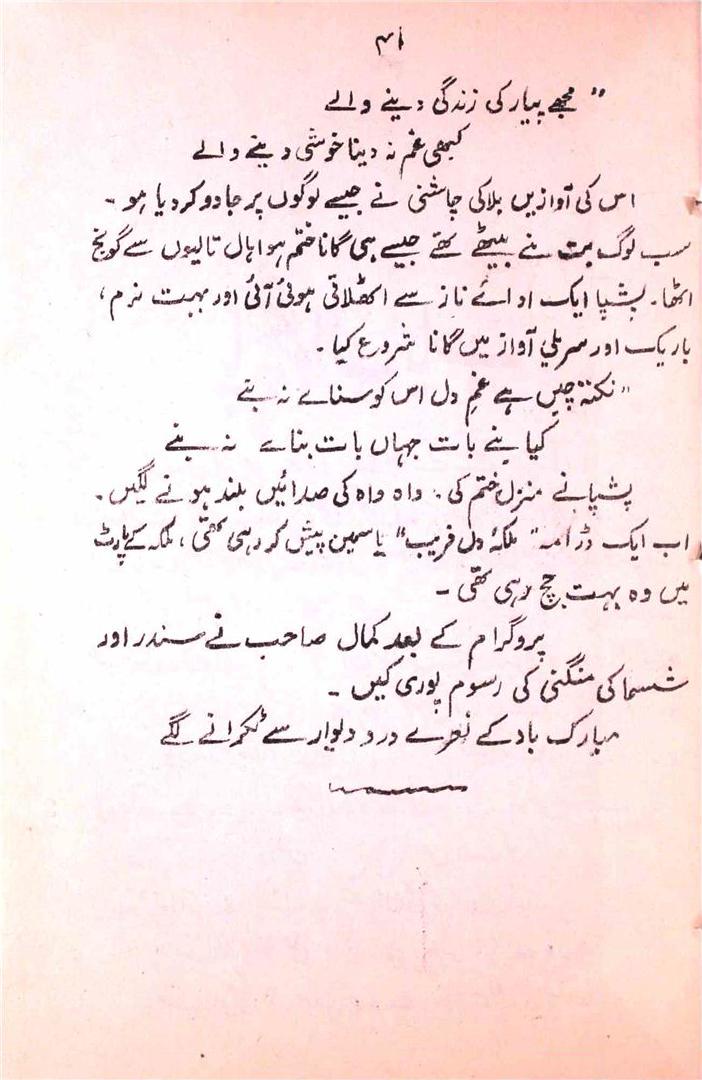 ۴۱
" مجھے پیار کی زندگی دینے والے
کبھی غم نہ دینا خوشی دینے والے
اس کی آوازیں بلا کی چاشنی نے جیسے لوگوں پر جادو کر دیا ہو ۔
سب لوگ بت بنے بیٹھے تھے جیسے ہی گانا ختم ہوا ہال تالیوں سے گونج
اٹھا ۔ پشپا ایک ادائے ناز سے اٹھلاتی ہوئی آئی اور بہت نرم ،
باریک اور سریلی آواز میں گانا شروع کیا ۔
" نکتہ چیں ہے غمِ دل اس کو سنائے نہ بنے
کیا بنے بات جہاں بات بنائے نہ بنے
پشپا نے منزل ختم کی ۔ واہ واہ کی صدائیں بلند ہونے لگیں ۔
اب ایک ڈرامہ " ملکۂ دل فریب " یاسمین پیش کر رہی تھی ، ملکہ کے پارٹ
میں وہ بہت جچ رہی تھی ۔
پروگرام کے بعد کمال صاحب نے سندر اور
شسما کی منگنی کی رسوم پوری کیں ۔
مبارک باد کے نعرے در و دیوار سے ٹکرانے لگے